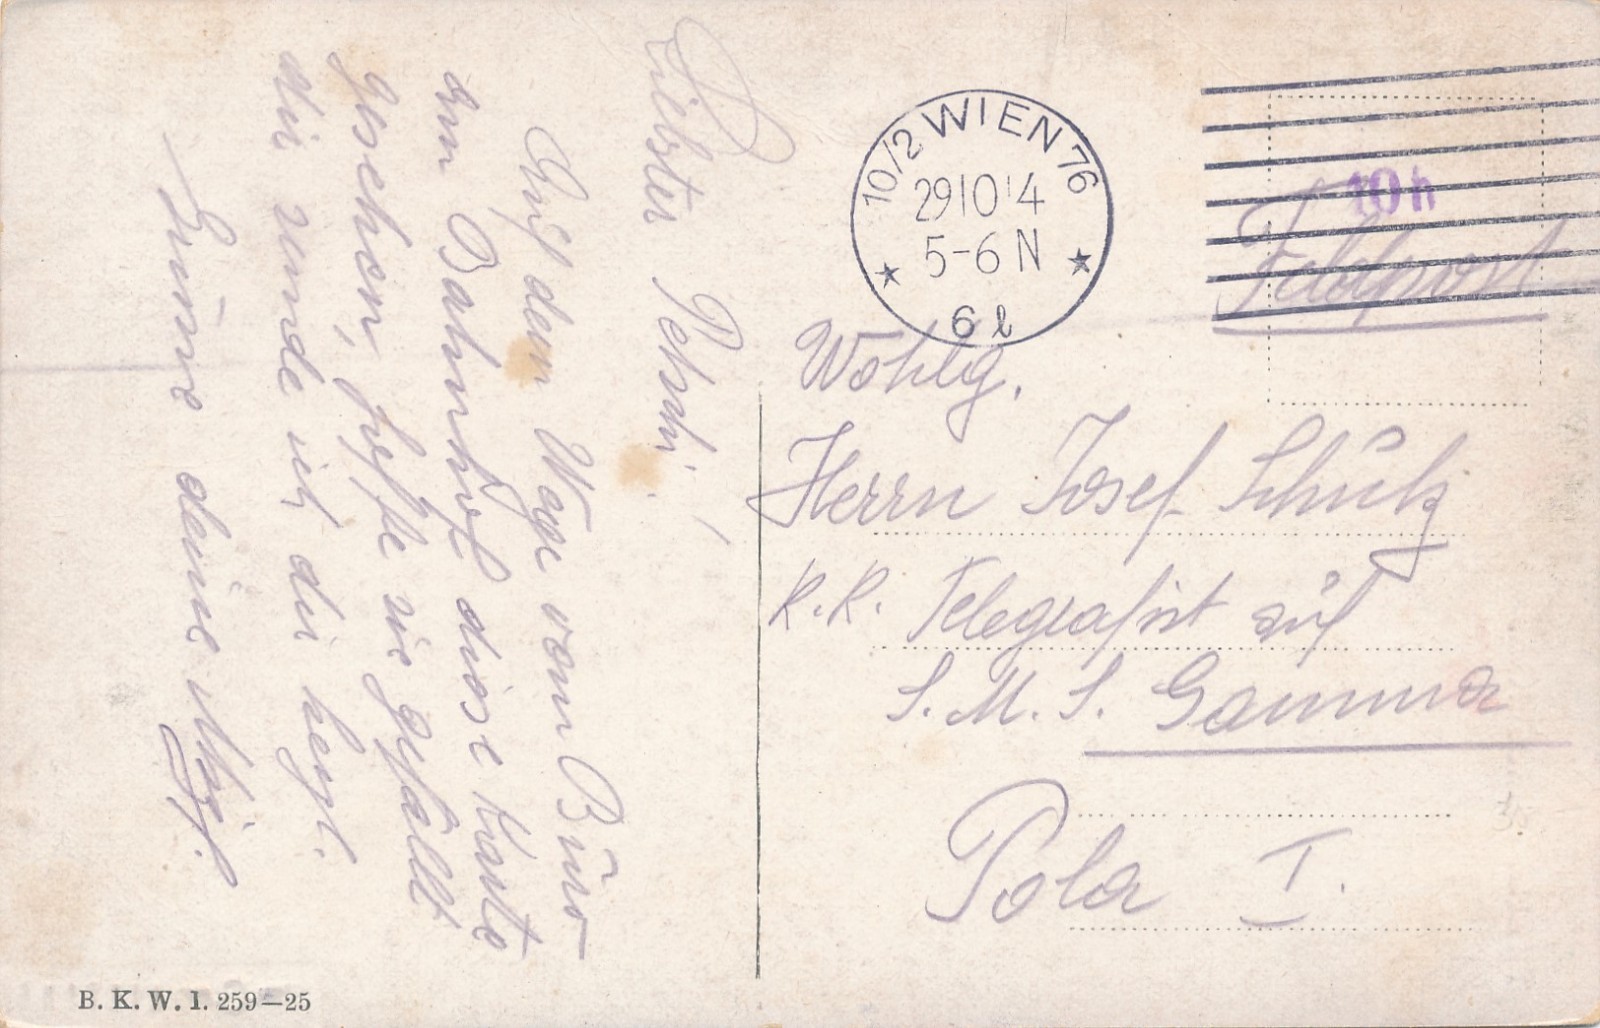 10/2 WIEN 76
29 10 14
5-6 N
6 l
10 h
Feldpost
Wohlg.
Herrn Josef Schütz
K. K. Telegrafist auf
S. M. S. Gamma
Pola I.
Liebster Pehmi!
Auf dem Wege vom Büro
am Bahnhof diese Karte
gesehen, hoffe sie gefällt
dir sende ich du
Immer deine Mizzi.
B. K. W. I. 259—25